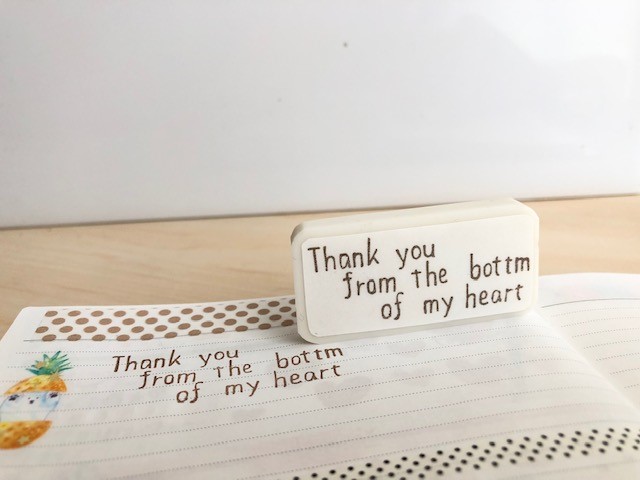 Thank you
from the bottm
of my heart
Thank you
from the bottm
of my heart